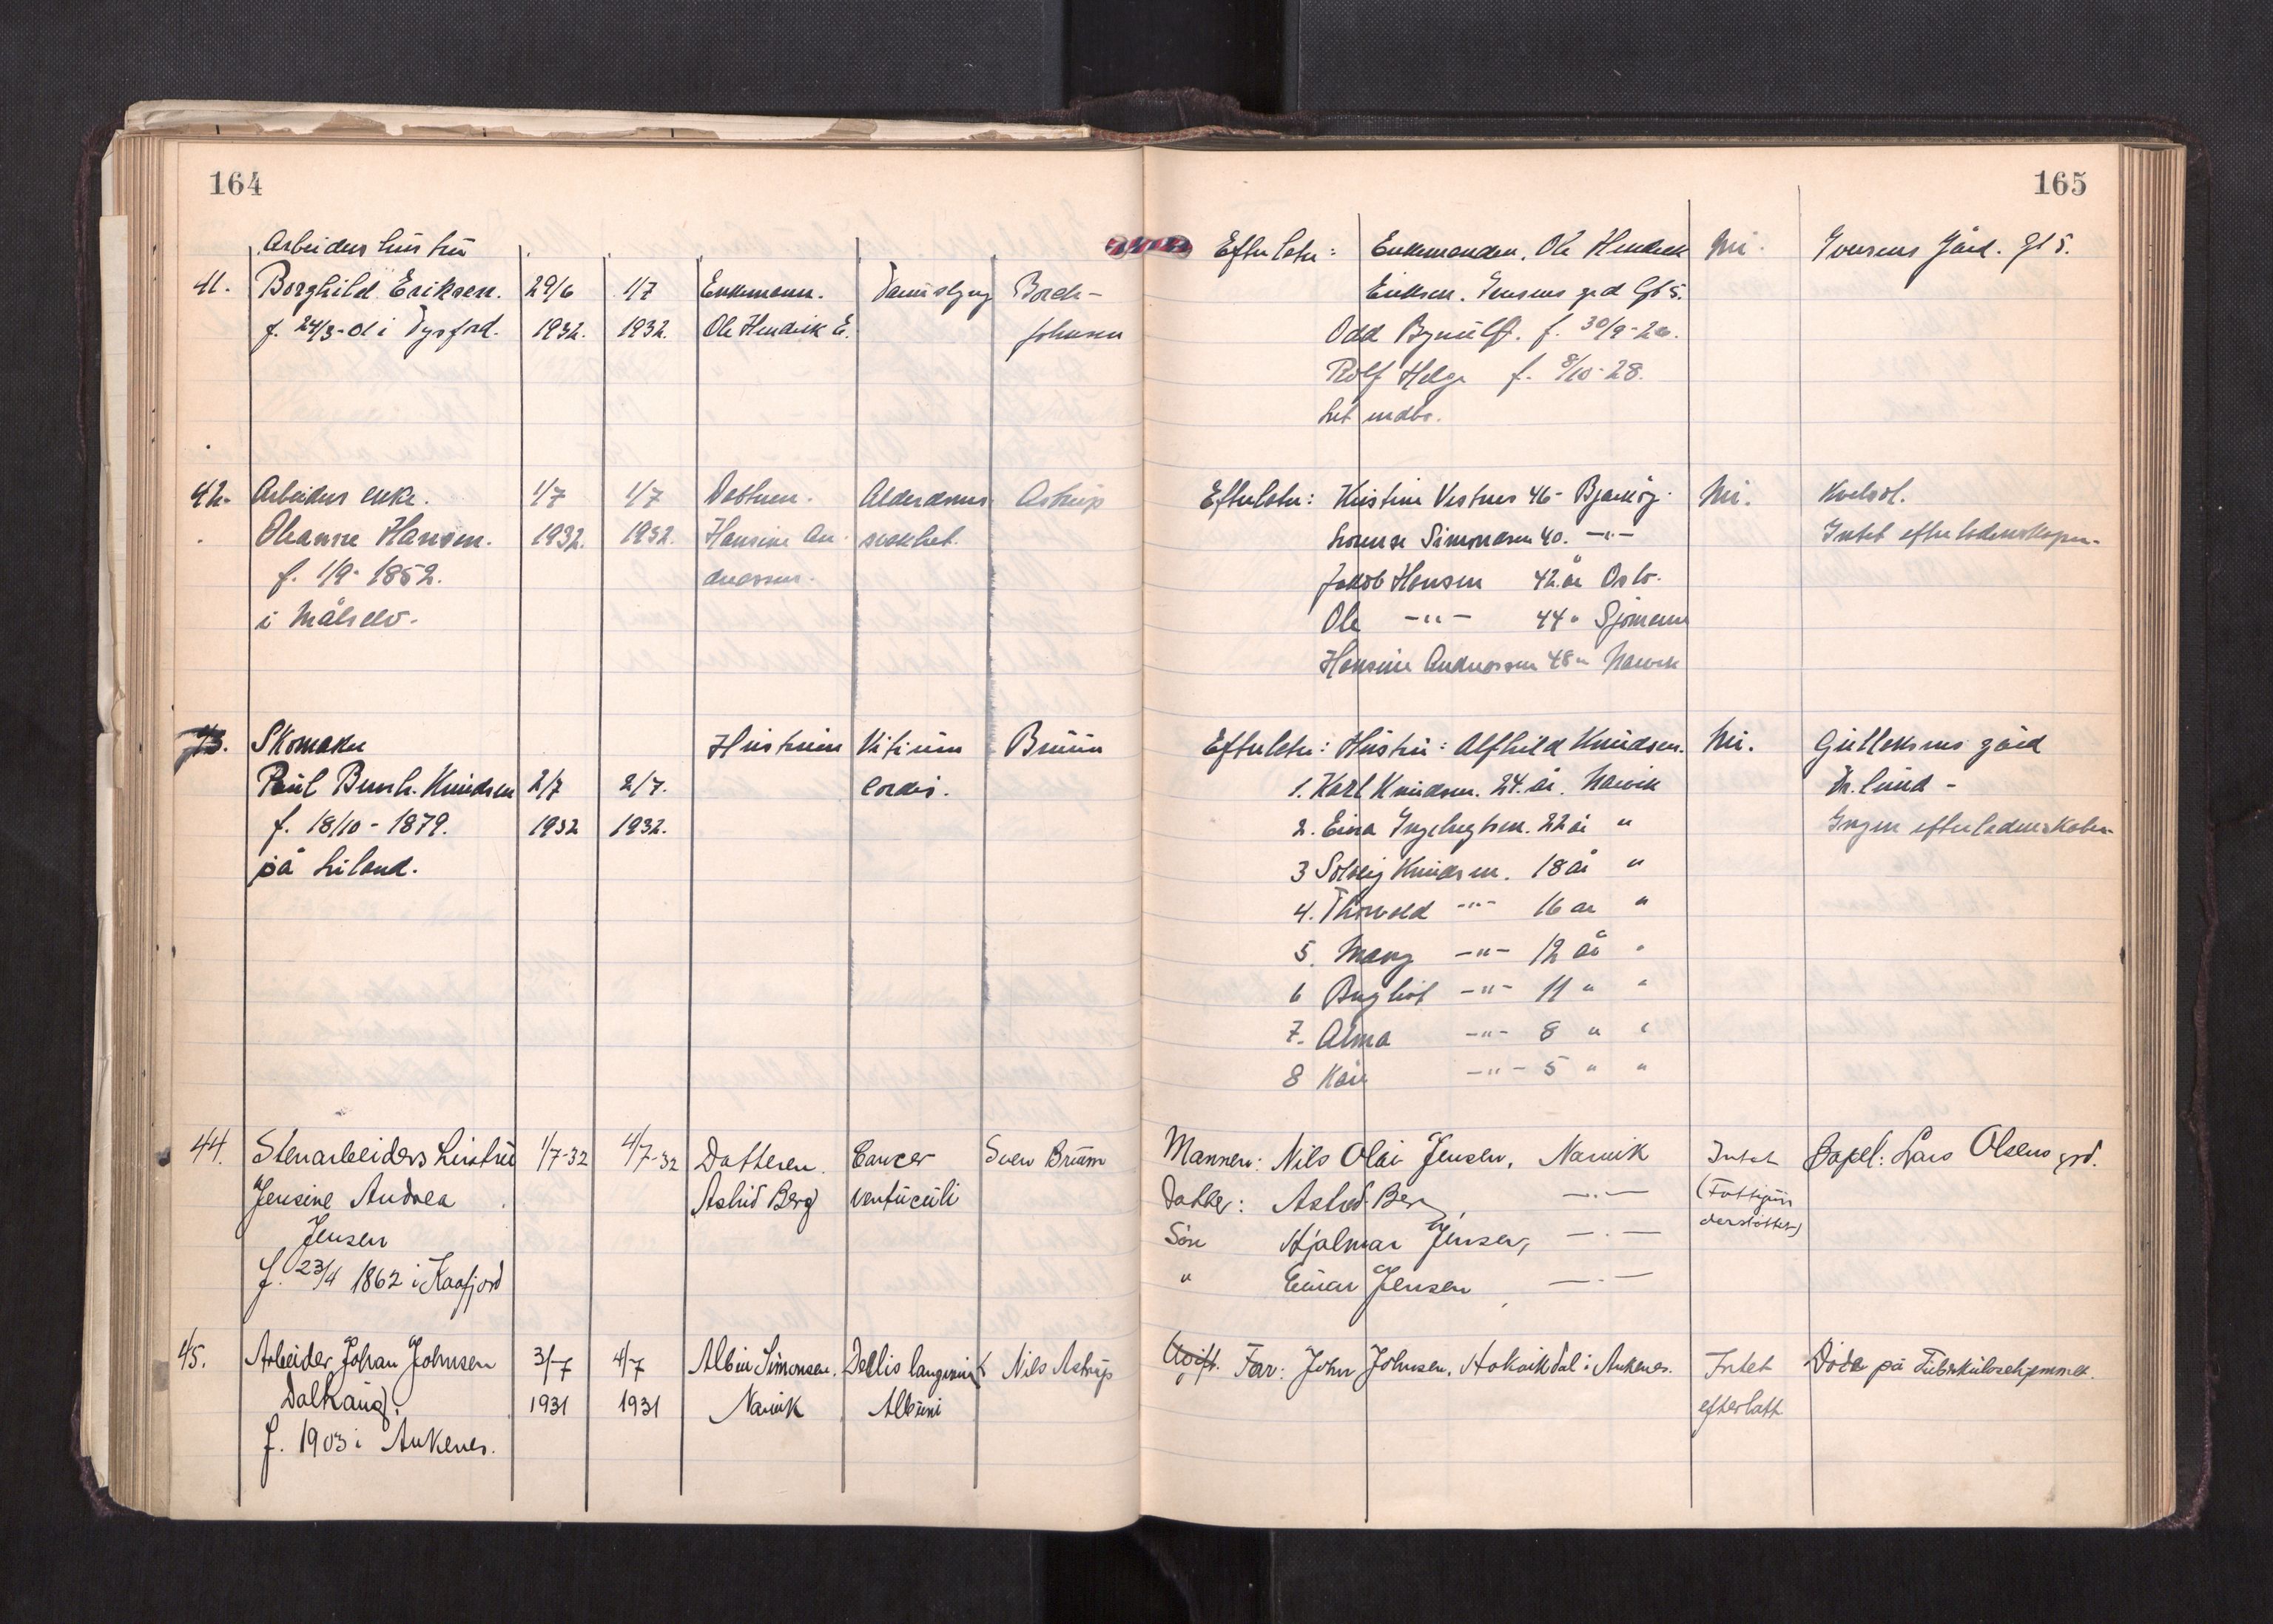 164
165
Arbeiders hustru
41. Borghild Eriksen. 29/6 1/7 Enkemann. Borch-
f. 24/3-01 i Tysfjord. 1932. 1932. Ole Hendrik E. Johnsen
Efterlater: Enkemanden, Ole Hendrik Nei. Iversens Gård. Gt 5.
Eriksen. Iversens grd Gt 5.
Odd Brynulf. f. 30/9-26.
Rolf Helge f. 8/10-28.
Litt indbo.
42. Arbeiders enke. 1/7 1/7 Datteren. Alderdoms Astrup
Oleanne Hansen. 1932. 1932. Hansine An- svakhet.
f. 1/9-1852. dreassen.
i Målselv.
Efterlater: Kristine Vestnes 46- Bjerkvig. Nei.
Lovise Simonsen 40. -"- Intet efterladenskaper.
Jakob Hansen 42 år Oslo.
Ole -"- 44 " Sjømann
Hansine Andreassen 48 " Narvik
43. Skomaker Hustruen Vitium Bruun
Paul Bernh. Knudsen 2/7 2/7. cordis.
f. 18/10-1879. 1932 1932.
på Liland.
Efterlater: Hustru: Alfhild Knudsen. Nei. Gulleksens gård
1. Karl Knudsen. 24. år. Narvik
2. Eina Ingebrigtsen. 22 år " Ingen efterladenskaber
3 Solveig Knudsen. 18 år "
4. Thorvald -"- 16 år "
5. Mary -"- 12 år "
6 Bergliot -"- 11 " "
7. Alma -"- 8 " "
8 Kåre -"- 5 " "
44. Stenarbeiders hustru 1/7-32 4/7-32 Datteren. Cancer Sven Bruun
Jensine Andrea Astrid Berg ventriculi
Jensen
f. 23/4 1862 i Kaafjord
Mannen: Nils Olai Jensen, Narvik Intet Bopel: Lars Olsens grd.
Datter: Astrid Berg, -"- (Fattigun
derstøttet)
Søn Hjalmar Jensen, -"-
" Einar Jensen -"-
45. Arbeider Johan Johnsen 3/7 4/7 Albin Simonsen. Nils Astrup
Dalhaug. 1931 1931 Narvik
f. 1903 i Ankenes.
Ugift. Far: John Johnsen, Håkvikdal i Ankenes. Intet Døde på Tuberkulosehjemmet.
efterlatt